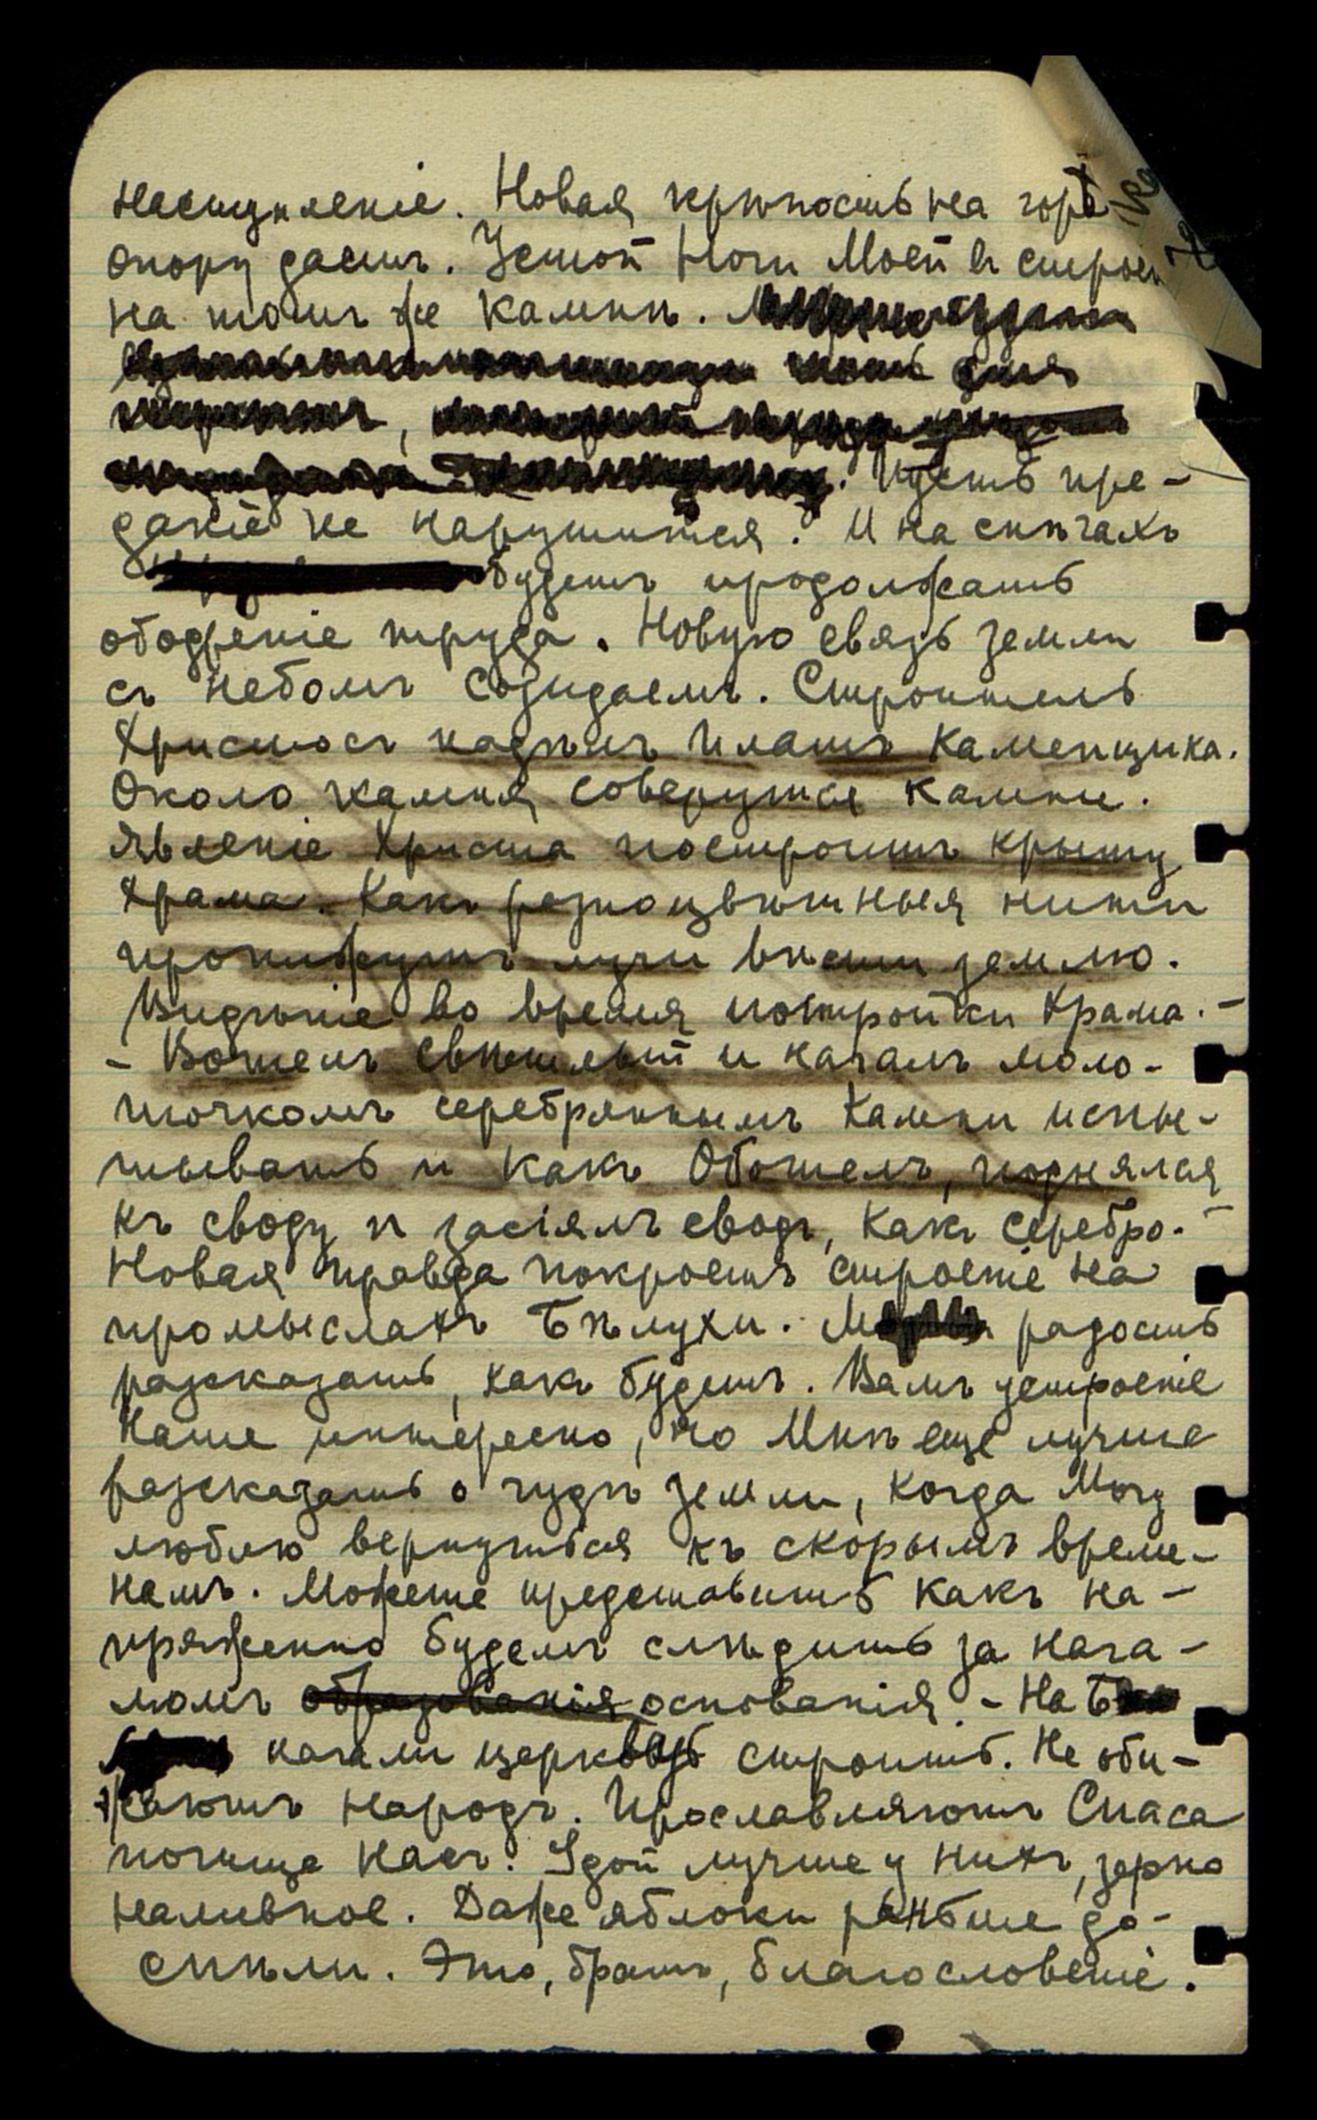 наступленіе. Новая крѣпость на горѣ
опору даетъ. Устой Ноги Моей в строен
на томъ же камнѣ.
Пусть пре-
даніе не нарушится. И на снѣгахъ
будетъ продолжать
ободреніе труда. Новую связь земли
съ небомъ созидаемъ. Строитель
Христосъ надѣлъ платъ Каменщика.
Около камня соберутся камни.
Явленіе Христа построитъ крышу
Храма. Какъ разноцвѣтныя нити
пронижутъ лучи вѣсти землю.
Видѣніе во время постройки Храма. -
- Вошелъ Свѣтлый и началъ моло-
точкомъ серебряннымъ Камни испы-
тывать и какъ Обошелъ, поднялся
къ своду и засіялъ сводъ, какъ серебро. -
Новая правда покроетъ строеніе на
промыслахъ Бѣлухи. радость
разсказать, какъ будетъ. Вамъ устроеніе
Наше интересно, но Мнѣ еще лучше
разсказать о чудѣ земли, когда Могу
люблю вернуться къ скорымъ време-
намъ. Можете представить какъ на-
пряженно будемъ слѣдить за нача-
ломъ образованія основанія. - На Б
начали церковь строить. Не оби-
жаютъ народъ. Прославляютъ Спаса
почище насъ. Удой лучше у нихъ, зерно
наливное. Даже яблоки раньше до-
спѣли. Это, братъ, благословеніе.